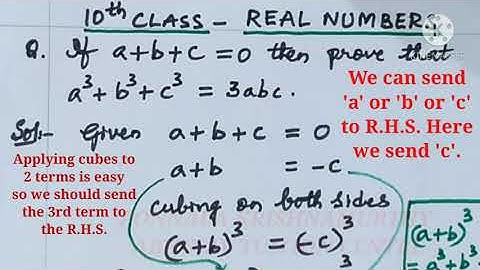 10th CLASS - REAL NUMBERS
Q. If a+b+c = 0 then prove that
a³+b³+c³ = 3abc.
We can send
'a' or 'b' or 'c'
to R.H.S. Here
we send 'c'.
Sol:- Given a+b+c = 0
a+b = -c
Applying cubes to
2 terms is easy
so we should send
the 3rd term to
the R.H.S.
cubing on both sides
(a+b)³ = (-c)³
(a+b)³
= a³+b³